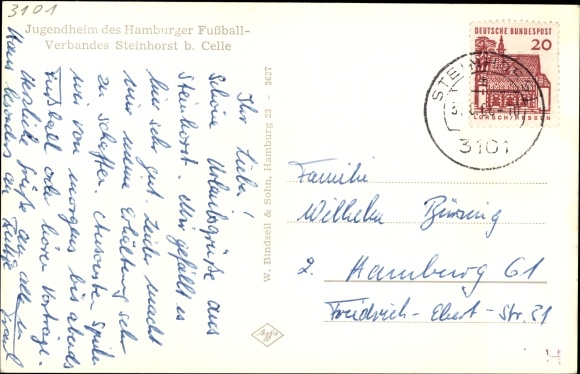 3101
Jugendheim des Hamburger Fußball-
Verbandes Steinhorst b. Celle
Ihr Lieben!
Schöne Urlaubsgrüße aus
Steinhorst. Mir gefällt es
hier sehr gut. Leider macht
mir meine Erkältung sehr
zu schaffen. Ansonsten spielen
wir von morgens bis abends
Fußball oder hören Vorträge.
Herzliche Grüße Euch allen
Hans
W. Bindseil & Sohn, Hamburg 22 - 3627
Agfa
DEUTSCHE BUNDESPOST
20
LORSCH/HESSEN
STEINHORST
3101
Familie
Wilhelm Büring
2. Hamburg 61
Friedrich-Ebert-Str. 31
H